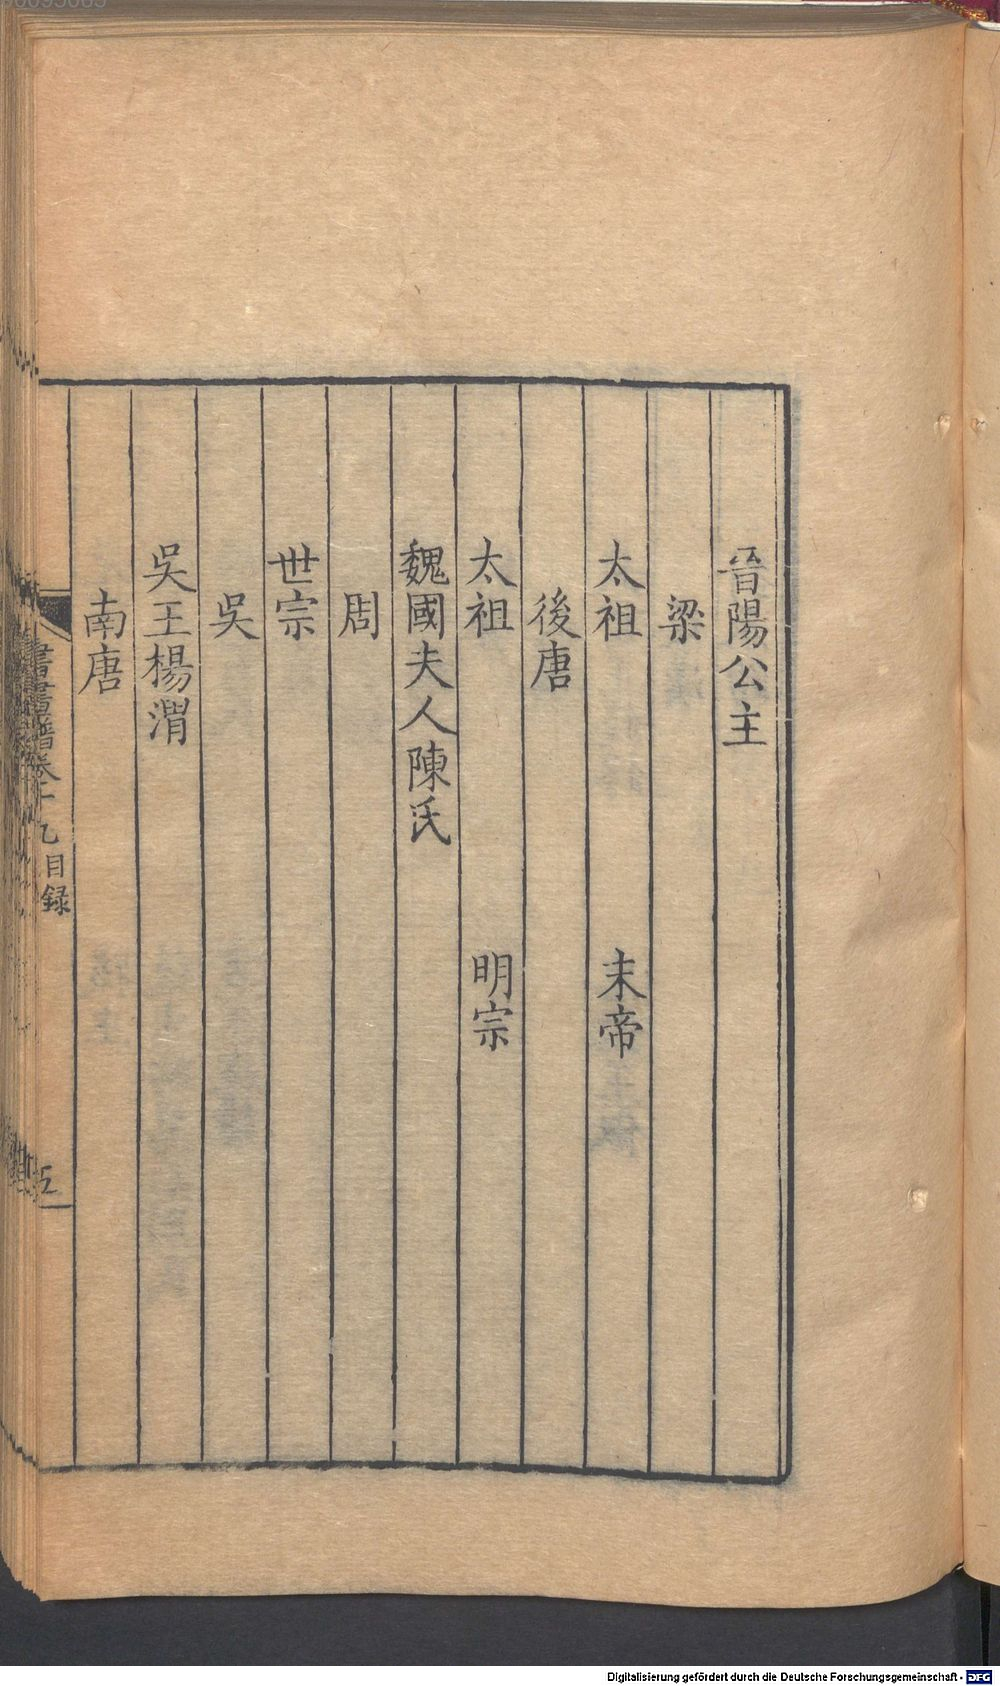 晉陽公主
梁
太祖 末帝
後唐
太祖 明宗
魏國夫人陳氏
周
世宗
吳
吳王楊渭
南唐
書畫譜卷十九目録
五
Digitalisierung gefördert durch die Deutsche Forschungsgemeinschaft - DFG